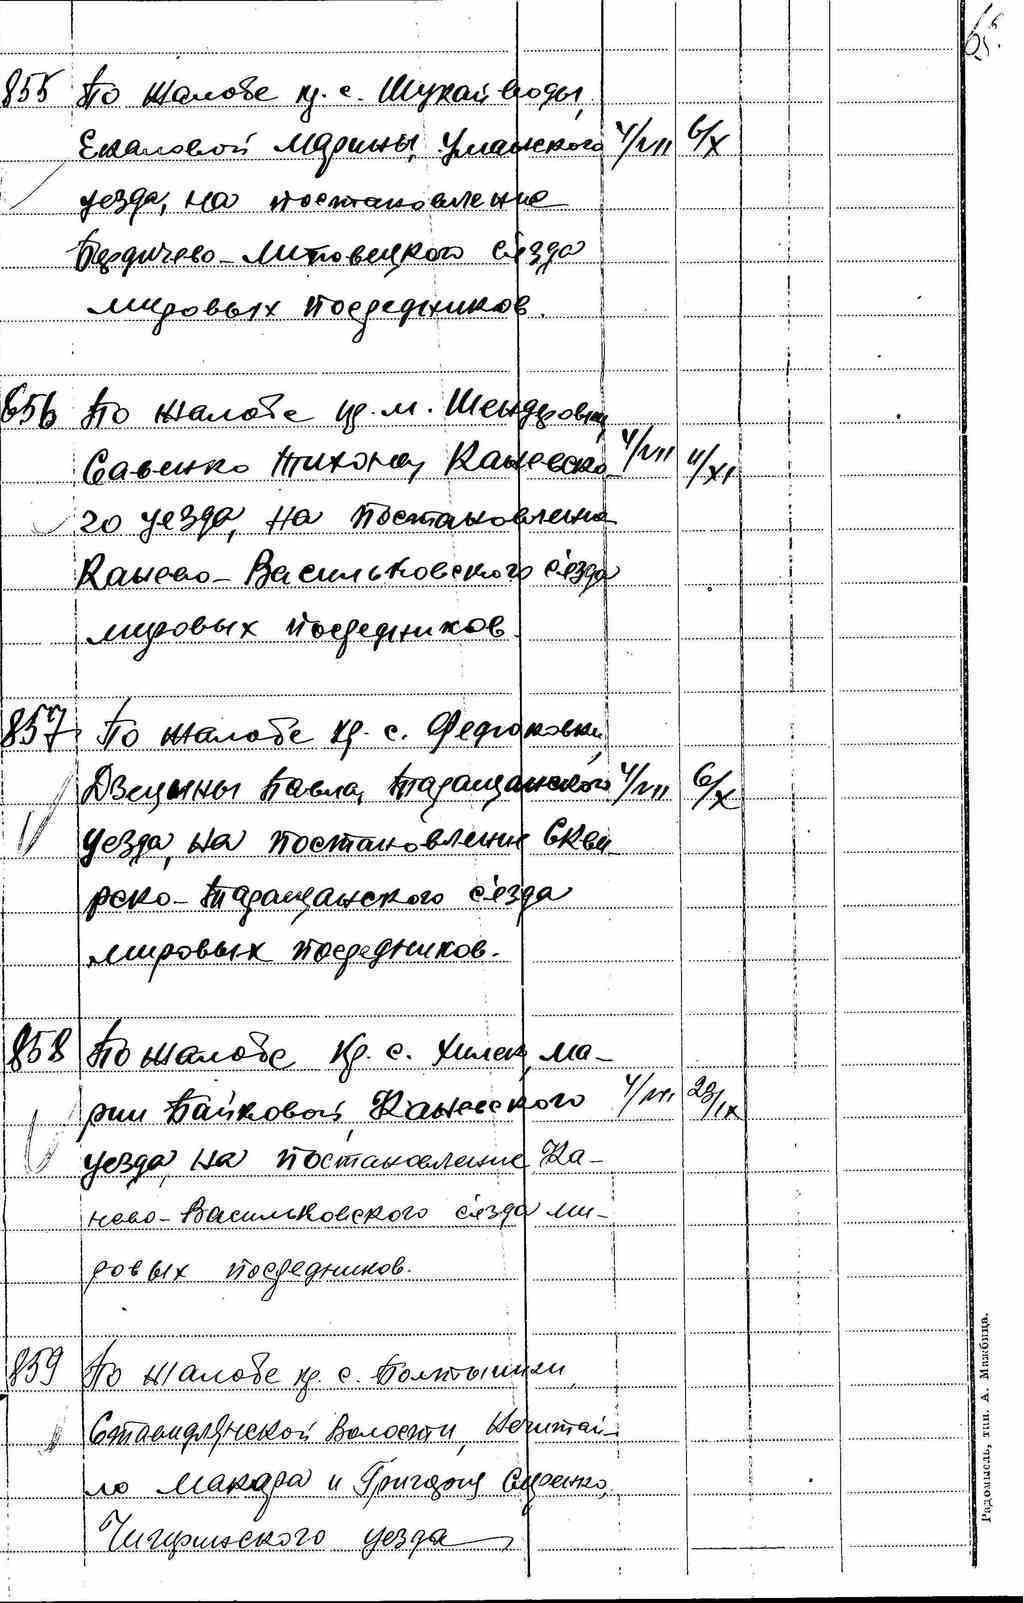 65.
855 По жалобе кр. с. Шукайводы,
Екаловой Марины, Уманского 4/VII 6/X
уезда, на постановление
Бердичево-Липовецкого съезда
мировых посредников.
856 По жалобе кр. м. Шендеровки,
Савенко Тихона, Каневско- 4/VII 4/XI
го уезда, на постановление
Канево-Васильковского съезда
мировых посредников.
857 По жалобе кр. с. Федюковки,
Дзецины Павла, Таращанского 4/VII 6/X
уезда, на постановление Скви-
рско-Таращанского съезда
мировых посредников.
858 По жалобе кр. с. Хилек, Ма-
рии Байковой, Каневского 4/VII 23/IX
уезда, на постановление Ка-
нево-Васильковского съезда ми-
ровых посредников.
859 По жалобе кр. с. Болтышки,
Ставидлянской волости, Нечитай-
ло Макара и Григория
Чигиринского уезда
Радомысль, тип. А. Мажбица.